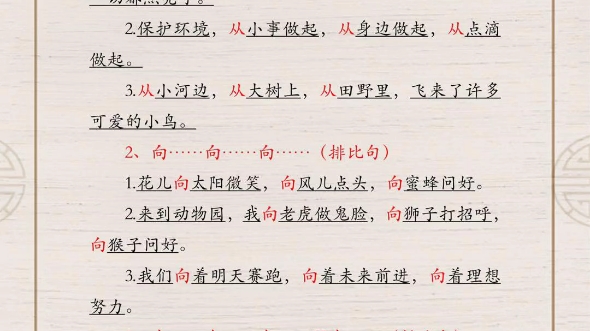 2.保护环境，从小事做起，从身边做起，从点滴
做起。
3.从小河边，从大树上，从田野里，飞来了许多
可爱的小鸟。
2、向……向……向……（排比句）
1.花儿向太阳微笑，向风儿点头，向蜜蜂问好。
2.来到动物园，我向老虎做鬼脸，向狮子打招呼，
向猴子问好。
3.我们向着明天赛跑，向着未来前进，向着理想
努力。